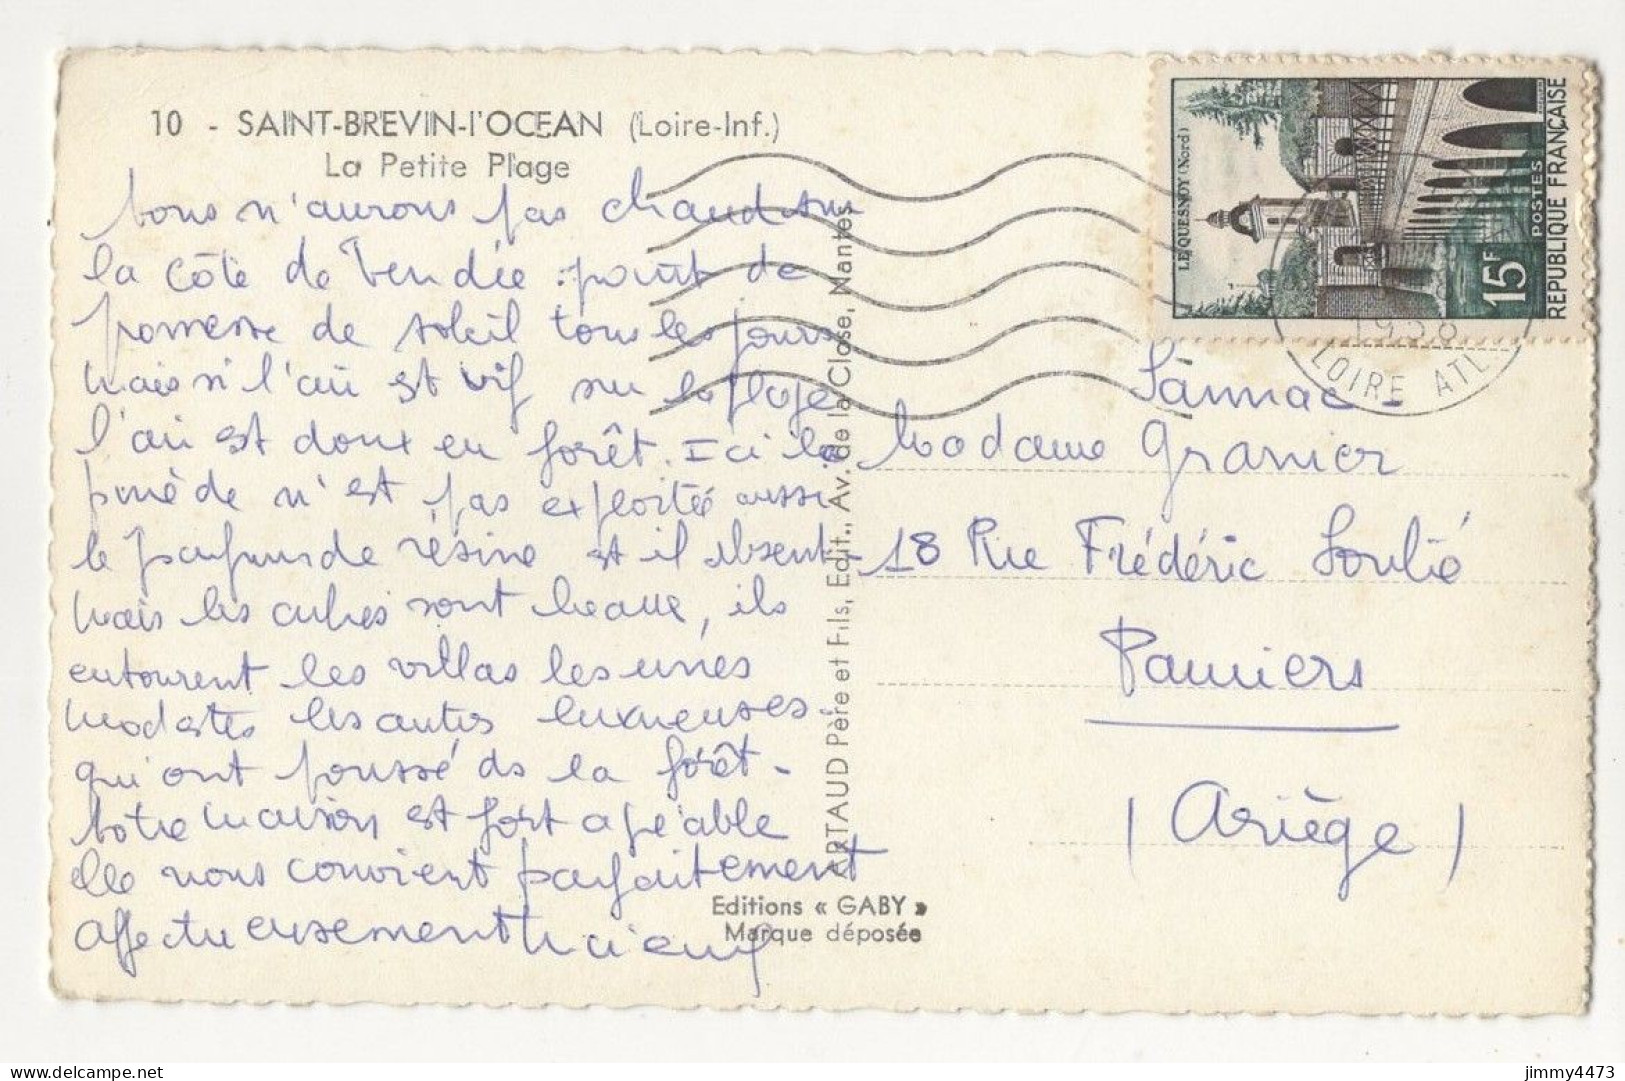 10 - SAINT-BREVIN-l'OCEAN (Loire-Inf.)
La Petite Plage
Nous n'aurons pas chaud sur
la côte de Vendée : point de
promesse de soleil tous les jours
mais si l'air est vif sur la plage
l'air est doux en forêt. Ici la
pinède n'est pas exploitée aussi
le parfum de résine est il absent -
mais les arbres sont beaux, ils
entourent les villas les unes
modestes les autres luxueuses
qui ont poussé ds la forêt -
Notre maison est fort agréable
elle nous convient parfaitement
affectueusement
ARTAUD Père et Fils, Edit., Av. de la Close, Nantes
Editions « GABY »
Marque déposée
LE QUESNOY (Nord)
15F
POSTES
REPUBLIQUE FRANÇAISE
1958
LOIRE ATL
Madame Granier
18 Rue Frédéric Soulié
Pamiers
(Ariège)
jimmy4473